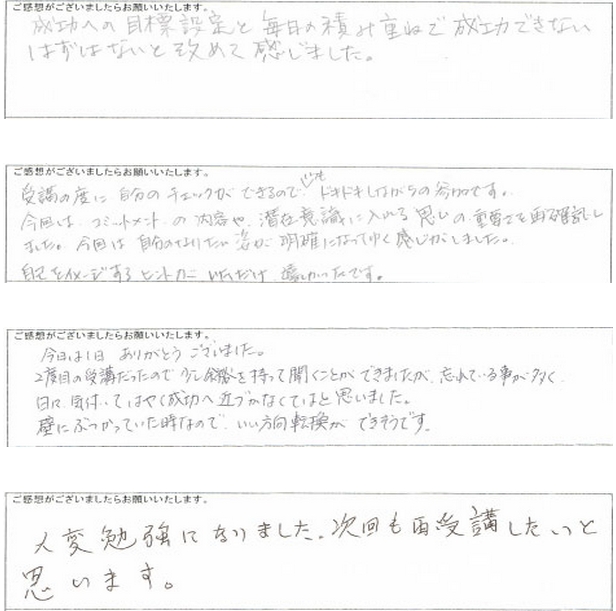 ご感想がございましたらお願いいたします。
成功への目標設定と毎日の積み重ねで成功できない
はずはないと改めて感じました。
ご感想がございましたらお願いいたします。
いつも
受講の度に自分のチェックができるので、ドキドキしながらの参加です。
今回は、コミットメントの内容や、潜在意識に入れる思いの重要さを再確認し
ました。今回は自分のなりたい姿が明確になってゆく感じがしました。
自己をイメージするヒントカニいただけ、嬉しかったです。
ご感想がございましたらお願いいたします。
今日は1日ありがとうございました。
2度目の受講だったので少し余裕を持って聞くことができましたが、忘れている事が多く、
日々気付いてはやく成功へ近づかなくてはと思いました。
壁にぶつかっていた時なので、いい方向転換ができそうです。
ご感想がございましたらお願いいたします。
大変勉強になりました。次回も再受講したいと
思います。